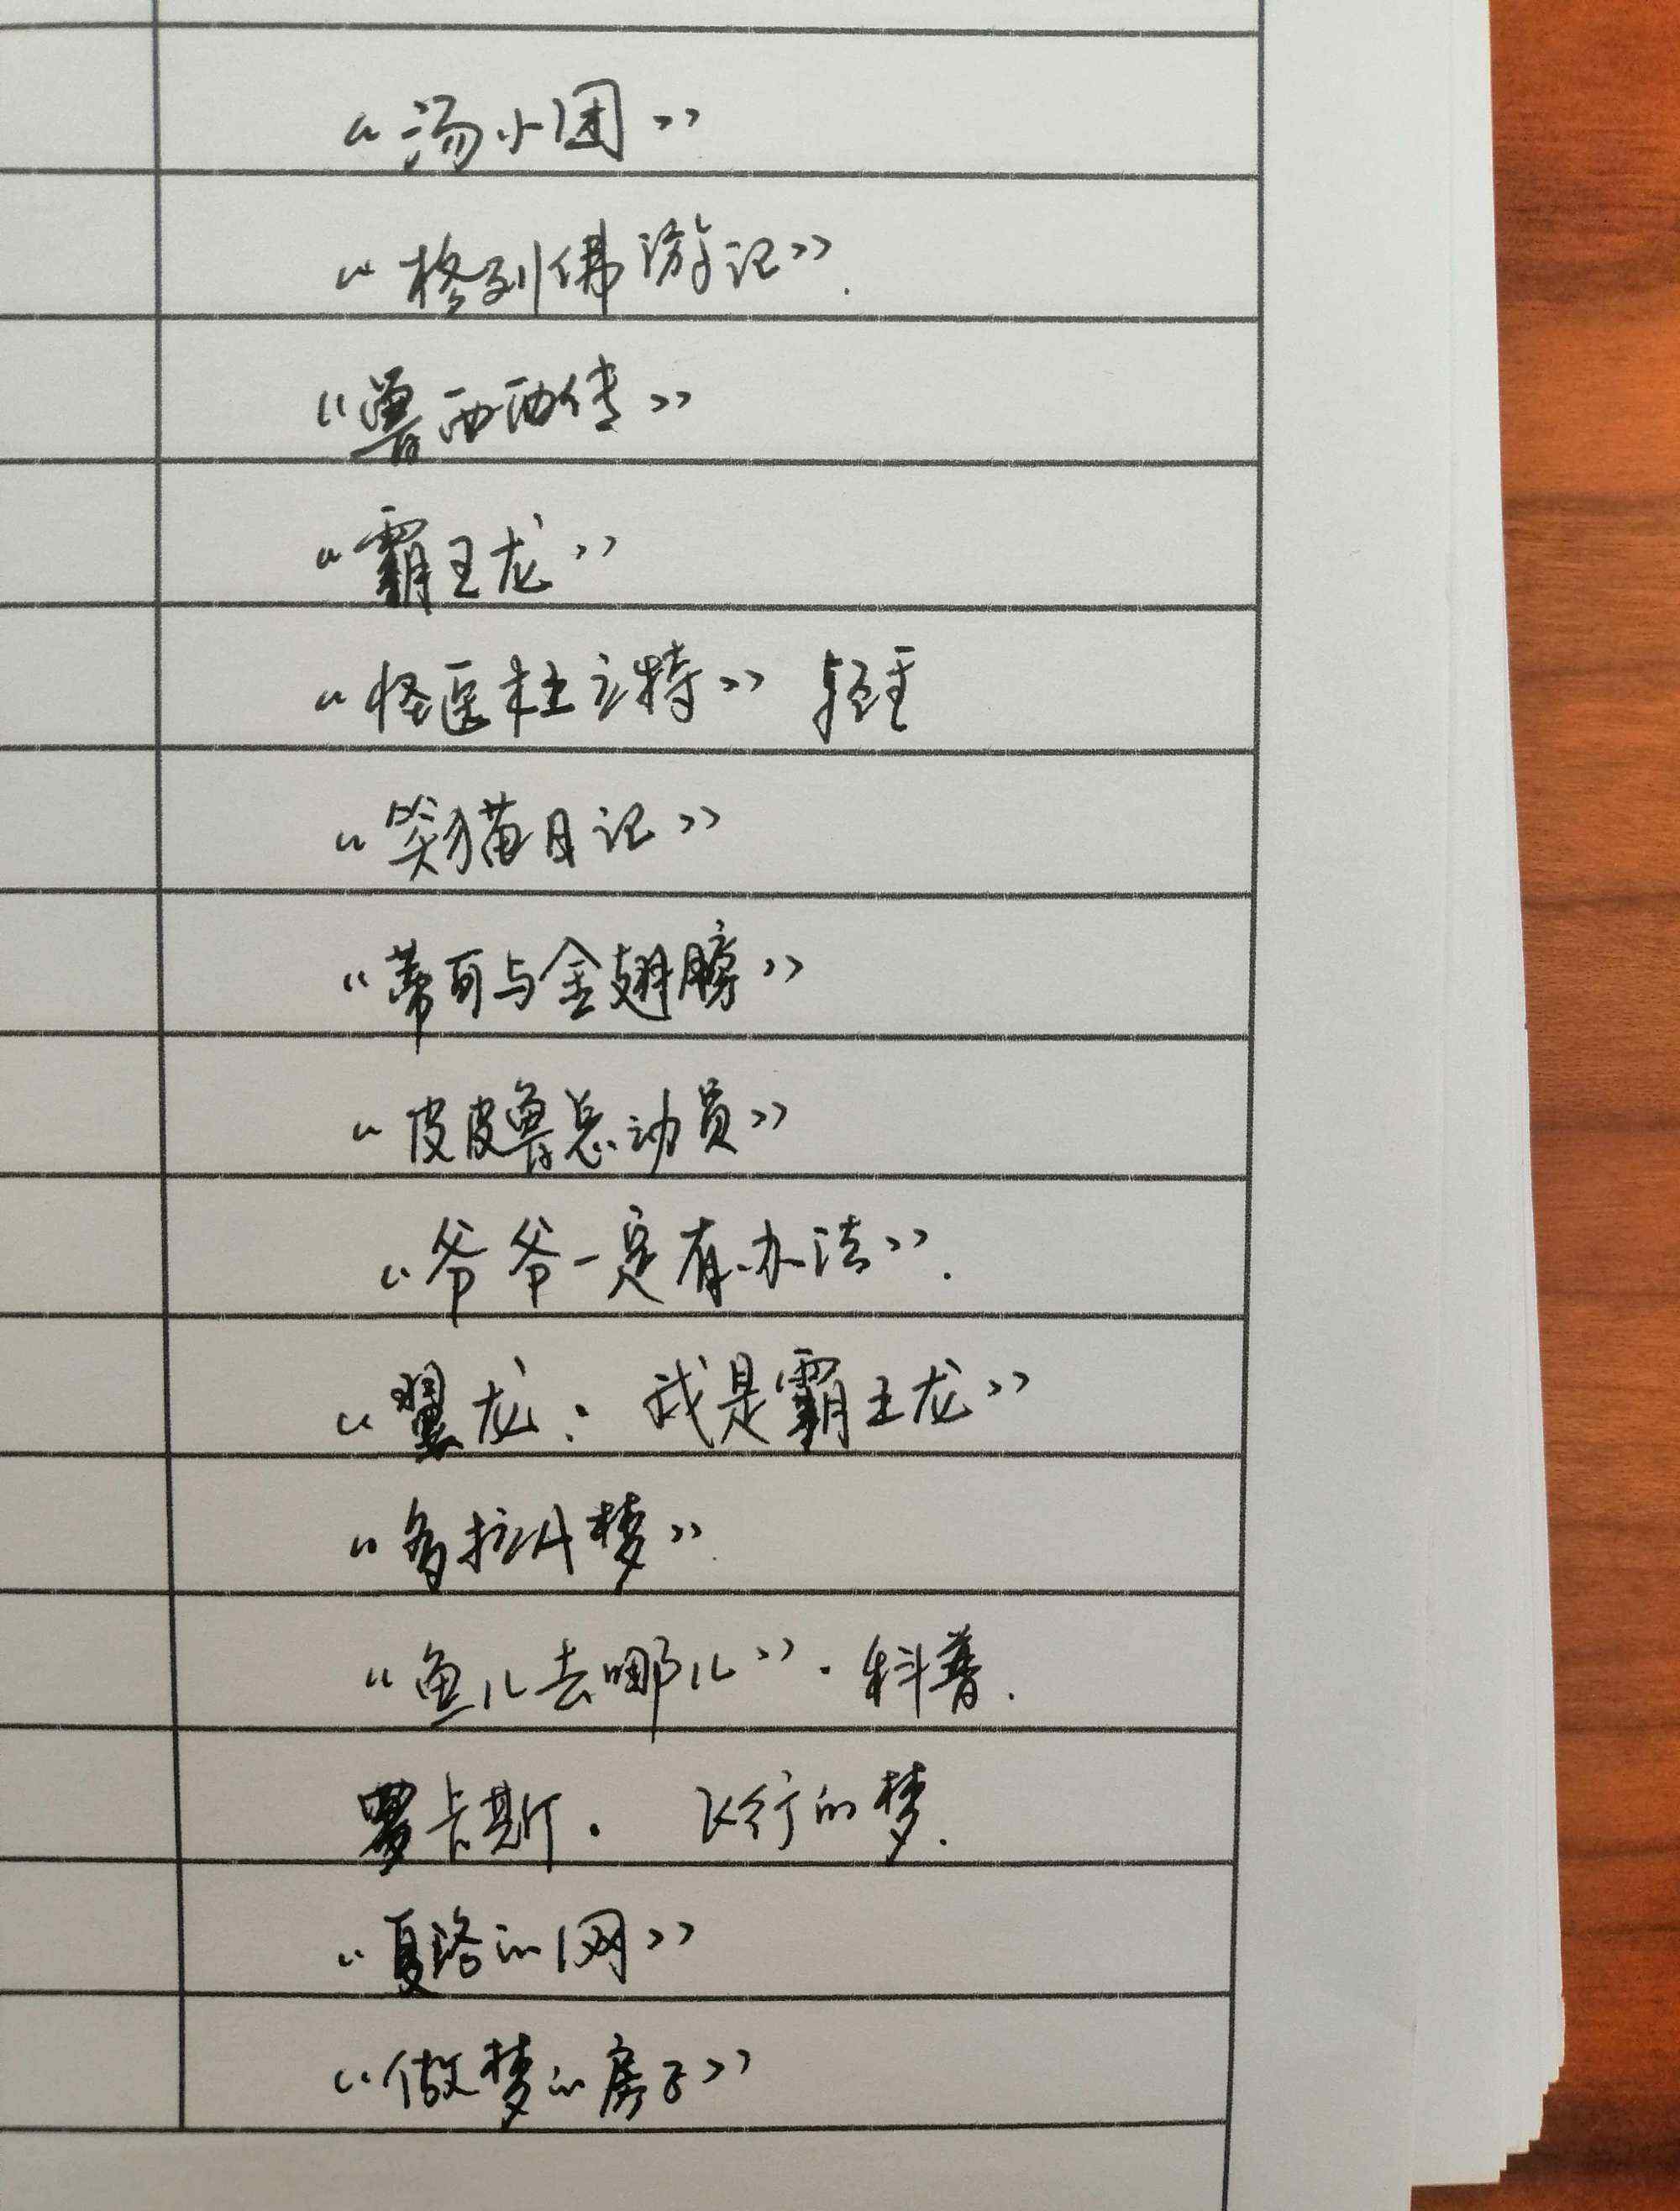 《汤小团》
《格列佛游记》.
《鲁西西传》
《霸王龙》
《怪医杜立特》
《笑猫日记》
《蒂可与金翅膀》
《皮皮鲁总动员》
《爷爷一定有办法》.
《翼龙：我是霸王龙》
《多拉A梦》
《鱼儿去哪儿》. 科普.
罗卡斯. 飞行的梦.
《夏洛的网》
《做梦的房子》